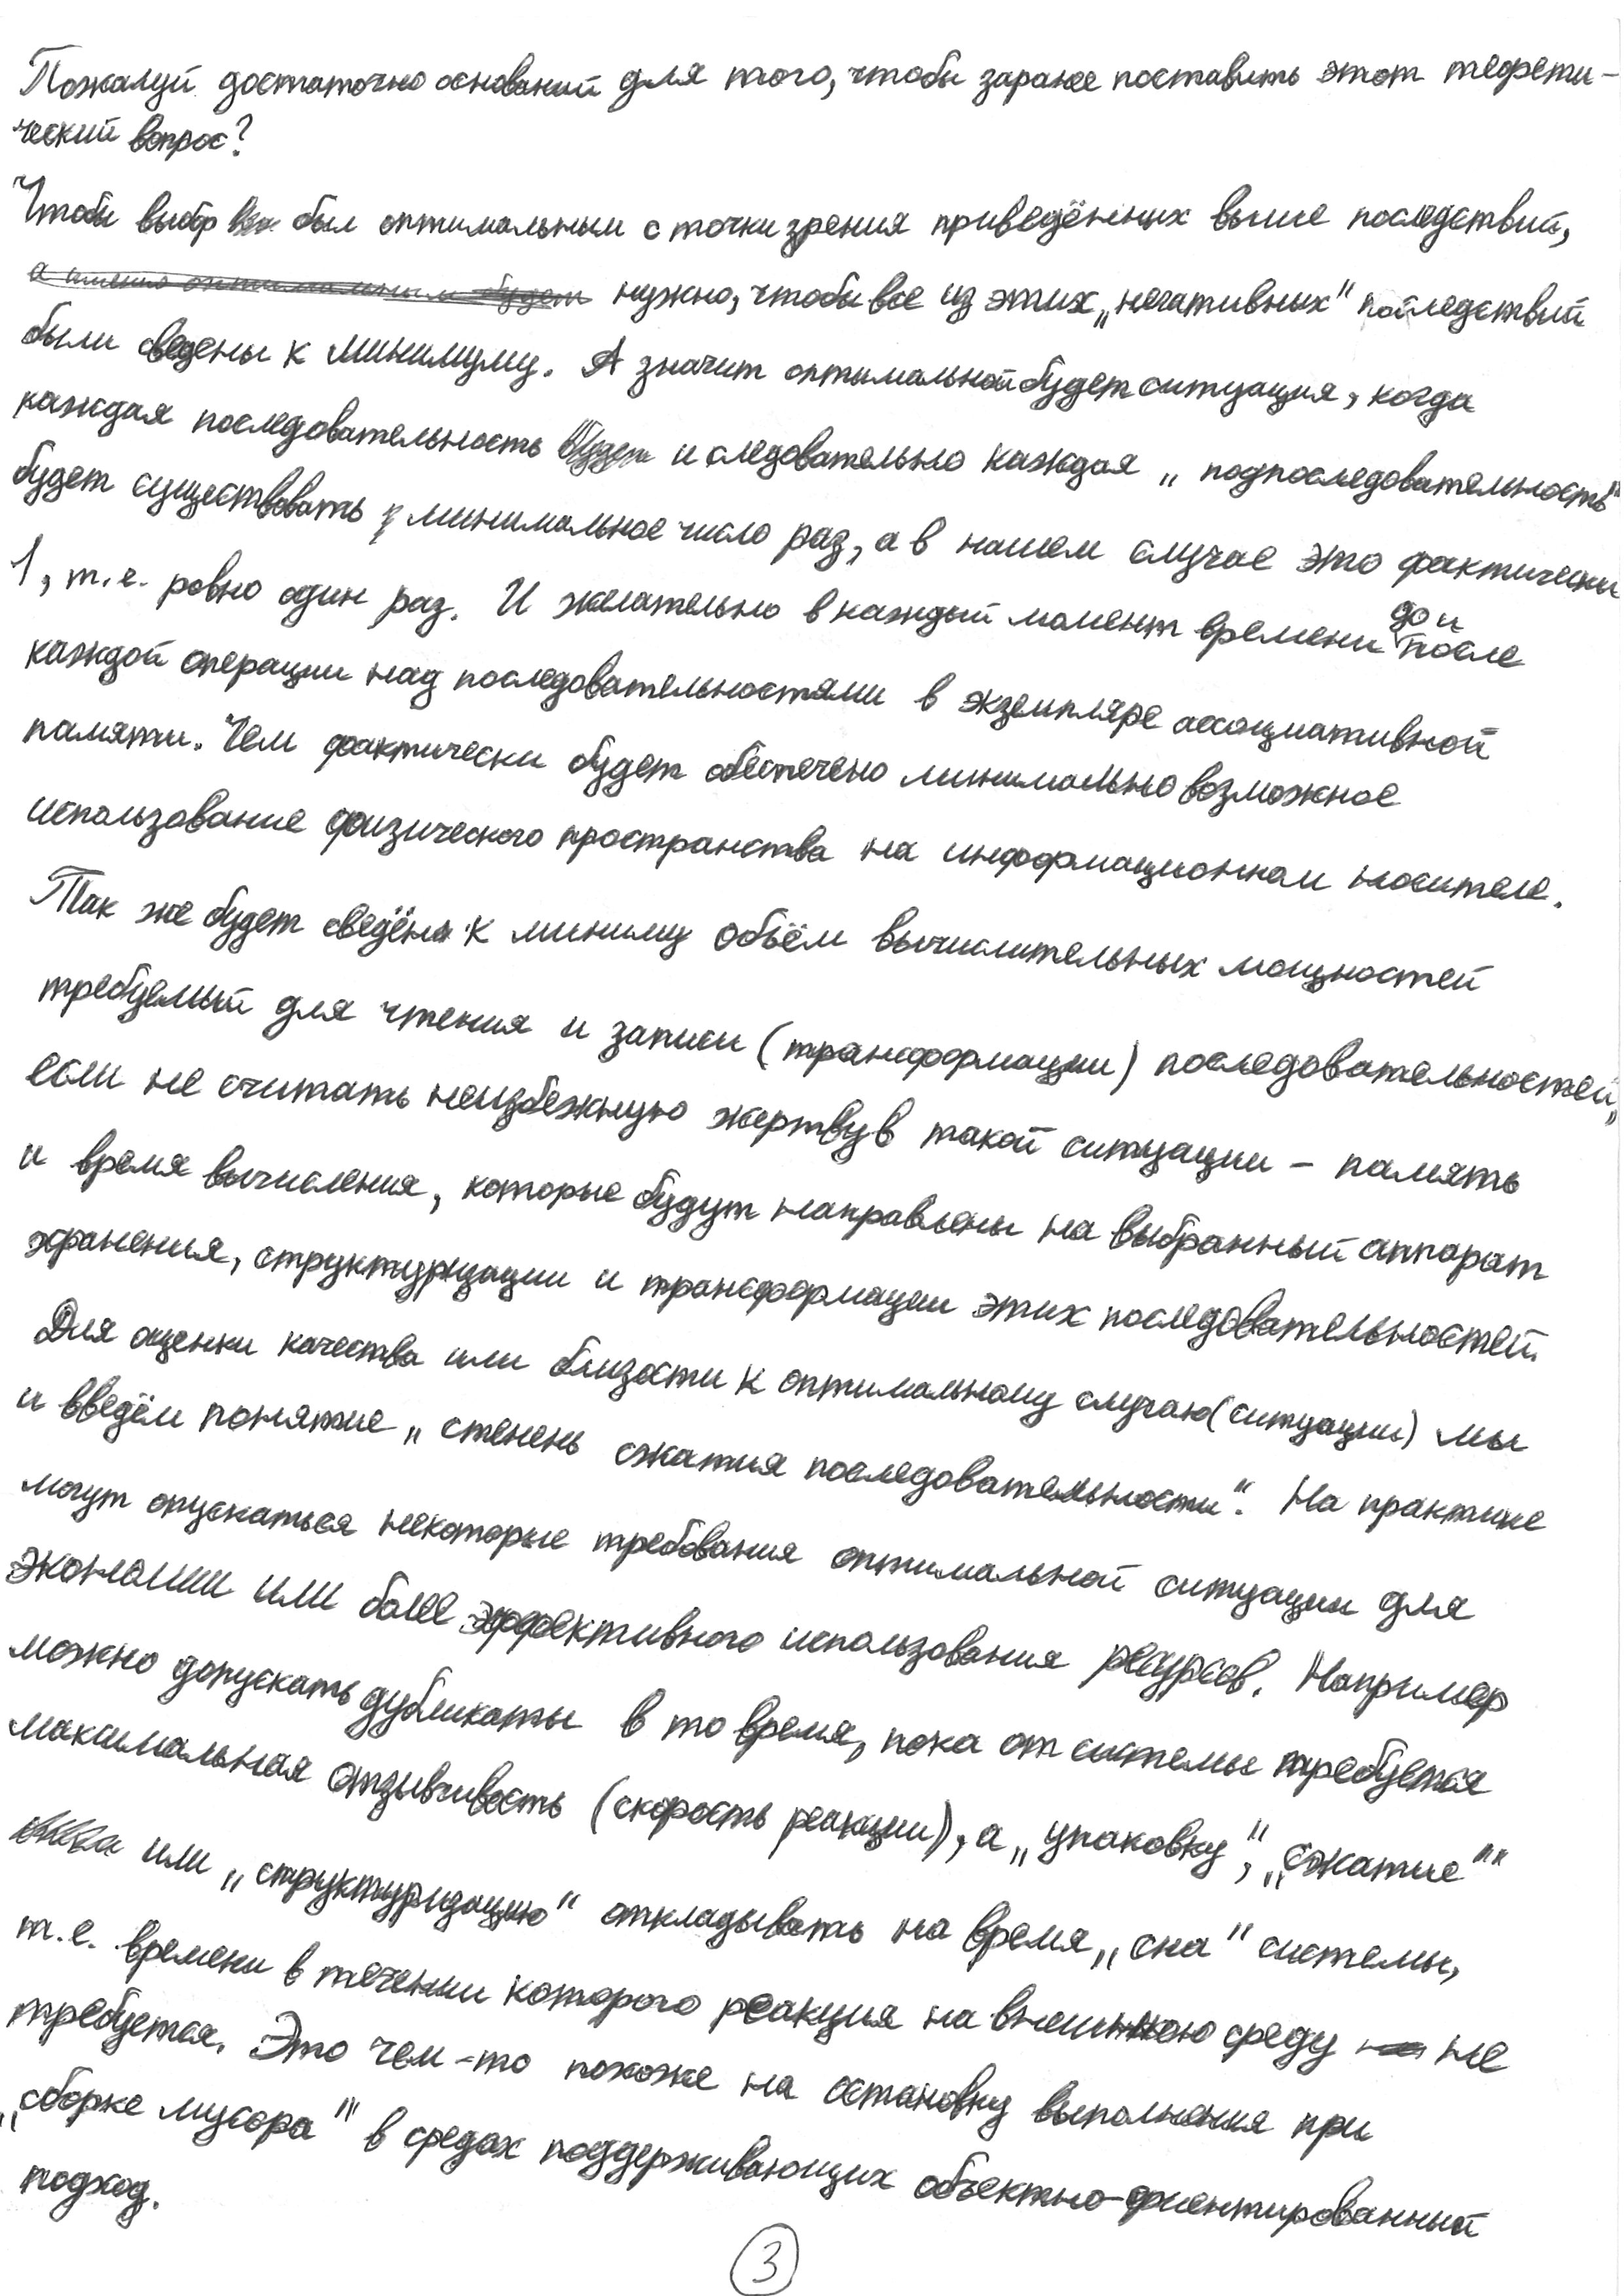 Пожалуй достаточно оснований для того, чтобы заранее поставить этот теорети-
ческий вопрос?
Чтобы выбор был оптимальным с точки зрения приведённых выше последствий,
а именно оптимальным будет нужно, чтобы все из этих „негативных" последствий
были сведены к минимуму. А значит оптимальной будет ситуация, когда
каждая последовательность будет и следовательно каждая „подпоследовательность"
будет существовать минимальное число раз, а в нашем случае это фактически
1, т.е. ровно один раз. И желательно в каждый момент времени до и после
каждой операции над последовательностями в экземпляре ассоциативной
памяти. Чем фактически будет обеспечено минимально возможное
использование физического пространства на информационном носителе.
Так же будет сведён к миниму объём вычислительных мощностей
требуемый для чтения и записи (трансформации) последовательностей,
если не считать неизбежную жертву в такой ситуации – память
и время вычисления, которые будут направлены на выбранный аппарат
хранения, структуризации и трансформации этих последовательностей.
Для оценки качества или близости к оптимальному случаю (ситуации) мы
и введём понятие „степень сжатия последовательности". На практике
могут опускаться некоторые требования оптимальной ситуации для
экономии или более эффективного использования ресурсов. Например
можно допускать дубликаты в то время, пока от системы требуется
максимальная отзывчивость (скорость реакции), а „упаковку", „сжатие""
или „структуризацию" откладывать на время „сна" системы,
т.е. времени в течении которого реакция на внешнюю среду не
требуется. Это чем-то похоже на остановку выполнения при
„сборке мусора"" в средах поддерживающих объектно-ориентированный
подход.
3